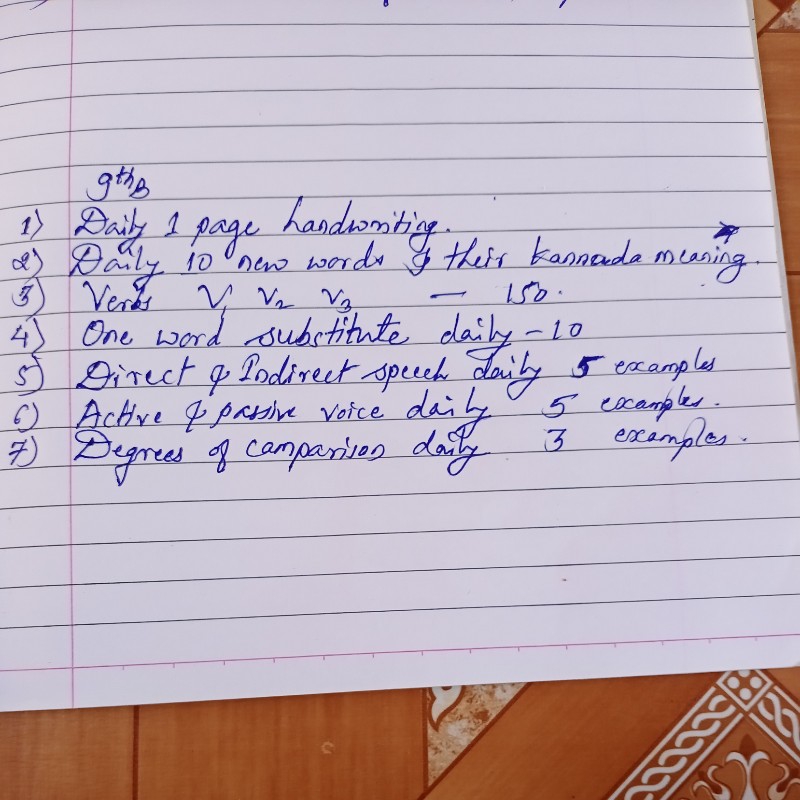 9th B
1) Daily 1 page handwriting.
2) Daily 10 new words & their kannada meaning.
3) Verbs V1 V2 V3 — 150.
4) One word substitute daily - 10
5) Direct & Indirect speech daily 5 examples
6) Active & passive voice daily 5 examples.
7) Degrees of comparison daily 3 examples.